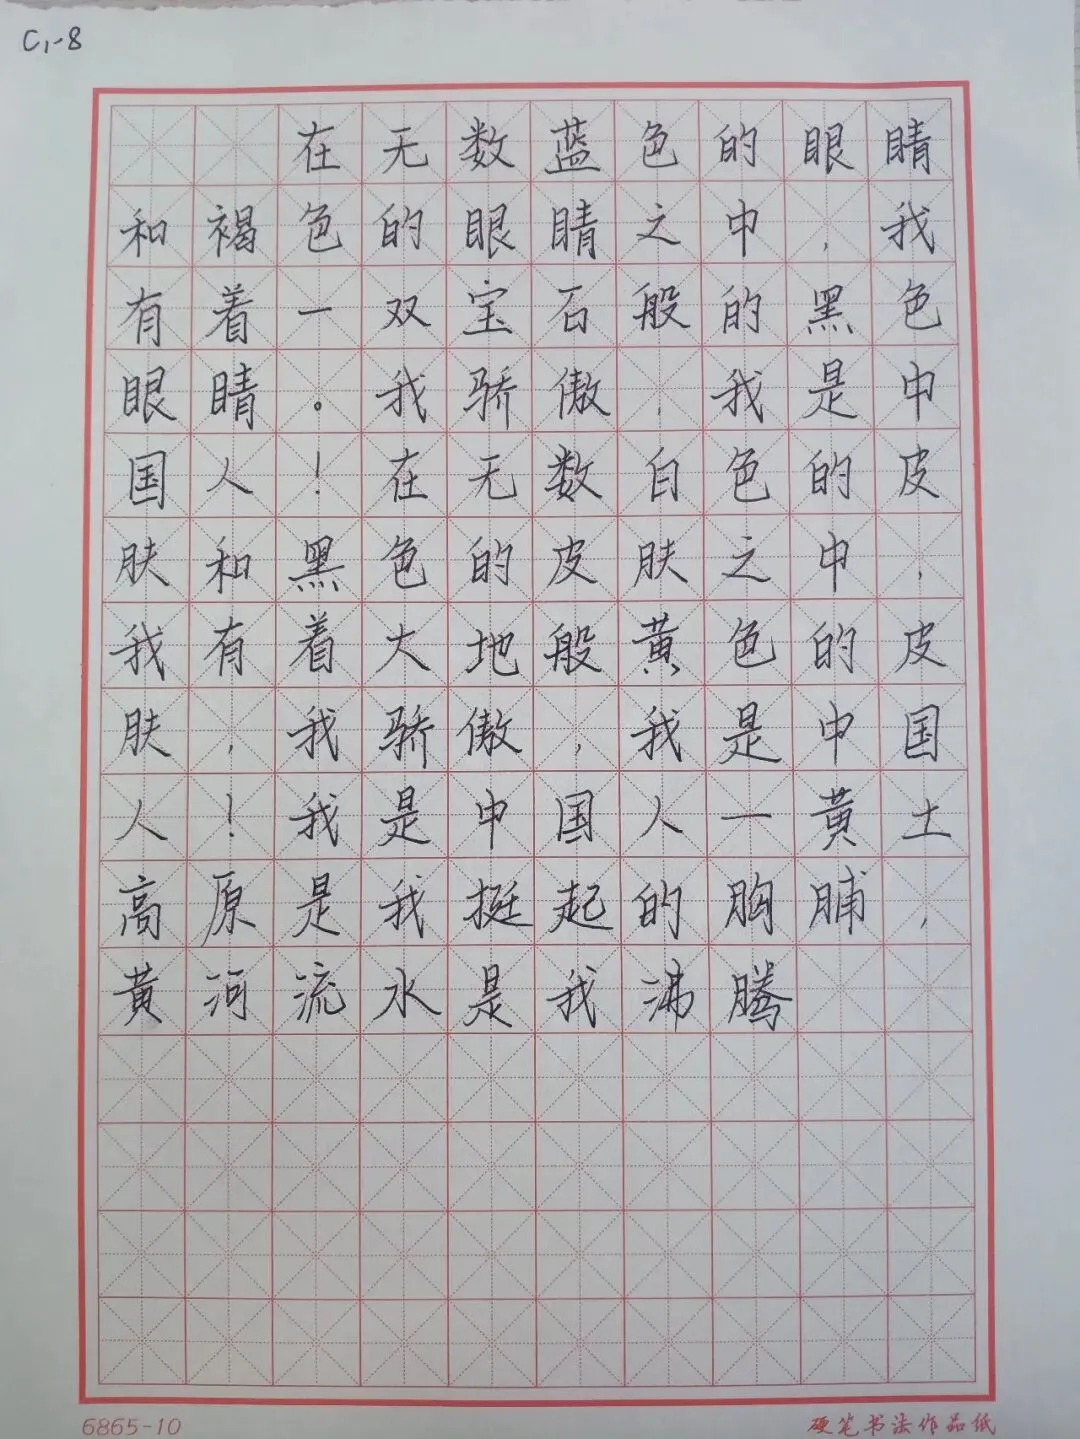 C1-8
在无数蓝色的眼睛
和褐色的眼睛之中,我
有着一双宝石般的黑色
眼睛。我骄傲,我是中
国人!在无数白色的皮
肤和黑色的皮肤之中,
我有着大地般黄色的皮
肤,我骄傲,我是中国
人!我是中国人一黄土
高原是我挺起的胸脯,
黄河流水是我沸腾
6865-10 硬笔书法作品纸